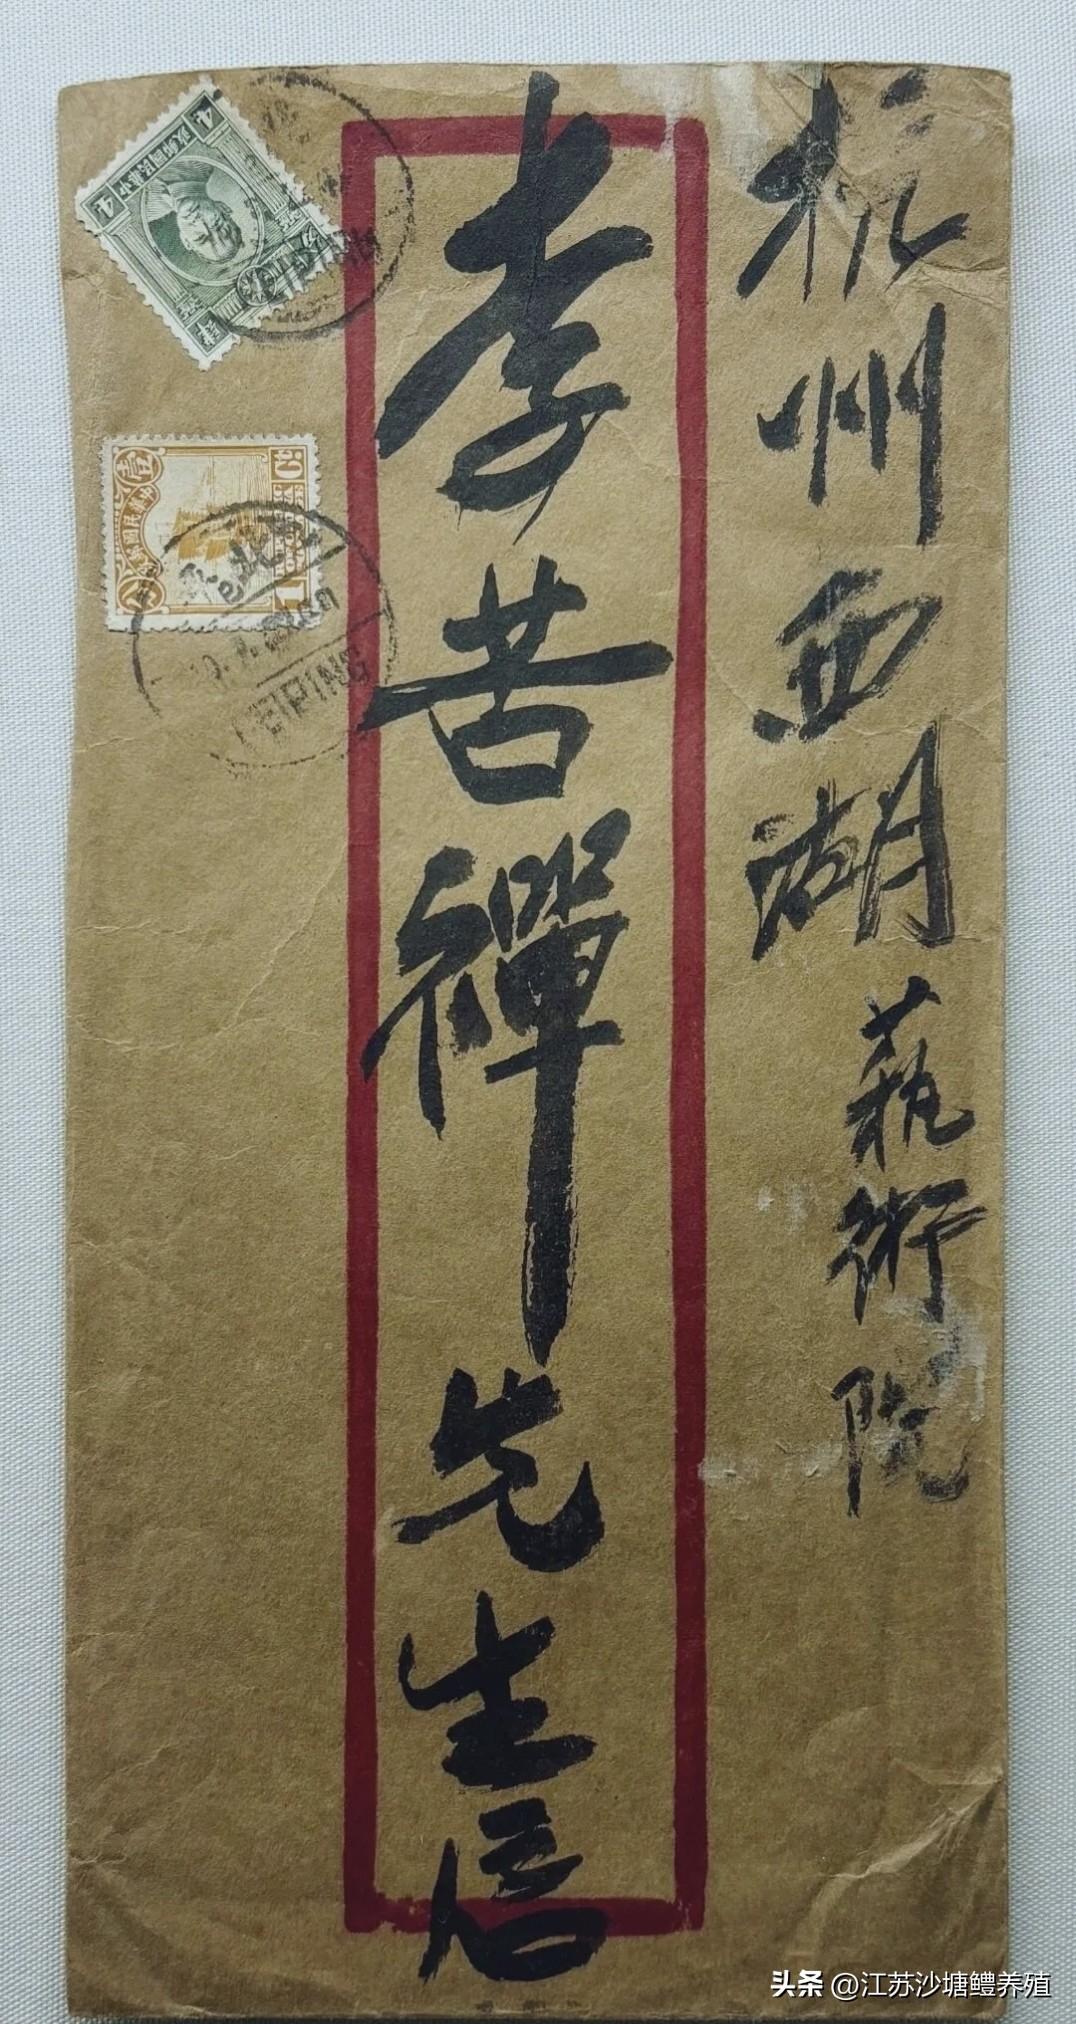 杭州西湖藝術院
李苦禪先生信
4
4
中華民國郵政
壹
中華民國郵政
1
PEIPING
头条 @江苏沙塘鳢养殖